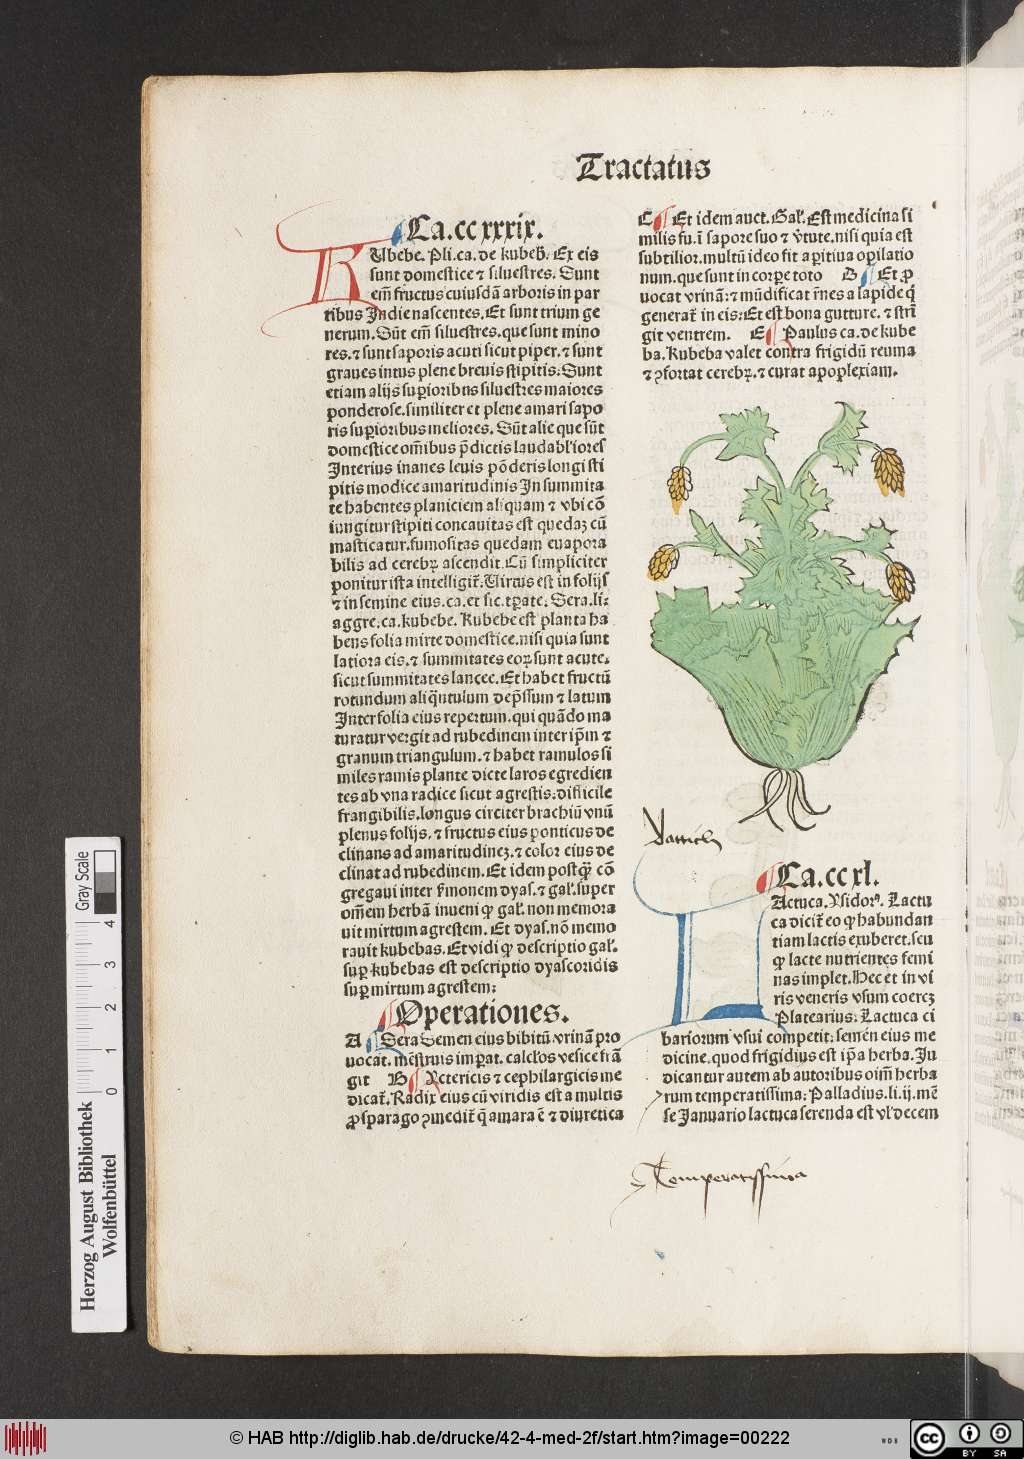 Tractatus
Ca.cc xxxix.
RUbebe. Pli.ca.de kubeb̄. Ex eis
sunt domestice ⁊ siluestres. Sunt
em̄ fructus cuiusdā arboris in par
tibus Indie nascentes. Et sunt trium ge
nerum. Sūt em̄ siluestres. que sunt mino
res. ⁊ sunt saporis acuti sicut piper. ⁊ sunt
graues intus plene breuis stipitis: Sunt
etiam alijs suꝑioribus siluestres maiores
ponderose. similiter et plene amari sapo
ris suꝑioribus meliores. Sūt alie que sūt
domestice om̄ibus p̄dictis laudabl'iores
Interius inanes leuis pōderis longi sti
pitis modice amaritudinis In summita
te habentes planiciem aliquam ⁊ vbi cō
iungitur stipiti concauitas est quedaꝫ cū
masticatur. fumositas quedam euapora
bilis ad cerebꝝ ascendit. Cū simpliciter
ponitur ista intelligit̄. Uirtus est in folijs
⁊ in semine eius. ca. et sic. tꝑate. Sera. li:
aggre. ca. kubebe. Kubebe est planta ha
bens folia mirte domestice. nisi quia sunt
latiora eis. ⁊ summitates eoꝝ sunt acute.
sicut summitates lancee. Et habet fructū
rotundum aliq̄ntulum dep̄ssum ⁊ latum
Inter folia eius repertum. qui quādo ma
turatur vergit ad rubedinem inter ip̄m ⁊
granum triangulum. ⁊ habet ramulos si
miles ramis plante dicte laros egredien
tes ab vna radice sicut agrestis: difficile
frangibilis. longus circiter brachiū vnū
plenus folijs. ⁊ fructus eius ponticus de
clinans ad amaritudineꝫ. ⁊ color eius de
clinat ad rubedinem. Et idem postq̄ꝫ cō
gregaui inter s̄monem dyas. ⁊ gal'. super
om̄em herbā inueni ꝙ gal'. non memora
uit mirtum agrestem. Et dyas. nō memo
rauit kubebas. Et vidi ꝙ descriptio gal'.
suꝑ kubebas est descriptio dyascoridis
suꝑ mirtum agrestem:
Operationes.
A Sera Semen eius bibitū. vrinā pro
uocat. mēstruis imꝑat. calcl'os vesice frā
git B Yctericis ⁊ cephilargicis me
dicat̄. Radix eius cū viridis est a multis
ꝓ sparago ꝯmedit̄ q̄ amara ē ⁊ diuretica
C Et idem auct. Gal'. Est medicina si
milis fu. ī sapore suo ⁊ v̄tute. nisi quia est
subtilior. multū ideo fit aꝑitiua opilatio
num. que sunt in corꝑe toto D Et ꝓ
uocat vrinā: ⁊ mūdificat r̄nes a lapide q́
generat̄ in eis: Et est bona gutture. ⁊ strī
git ventrem. E Paulus ca. de kube
ba. Kubeba valet contra frigidū reuma
⁊ ꝯfortat cerebꝝ. ⁊ curat apoplexiam.
Lattich
Ca.cc xl.
LActuca. Ysidorꝰ. Lactu
ca dicit̄ eo ꝙ habundan
tiam lactis exuberet. seu
ꝙ lacte nutrientes femi
nas implet. Hec et in vi
ris veneris vsum coerceꝫ
Platearius: Lactuca ci
bariorum vsui competit: semen eius me
dicine. quod frigidius est ip̄a herba. Iu
dicantur autem ab autoribus oim̄ herba
rum temperatissima: Palladius. li. ij. mē
se Ianuario lactuca serenda est vl' decem
Temperatissima
Gray Scale
0 1 2 3 4
Herzog August Bibliothek
Wolfenbüttel
© HAB http://diglib.hab.de/drucke/42-4-med-2f/start.htm?image=00222
WDB
cc BY SA